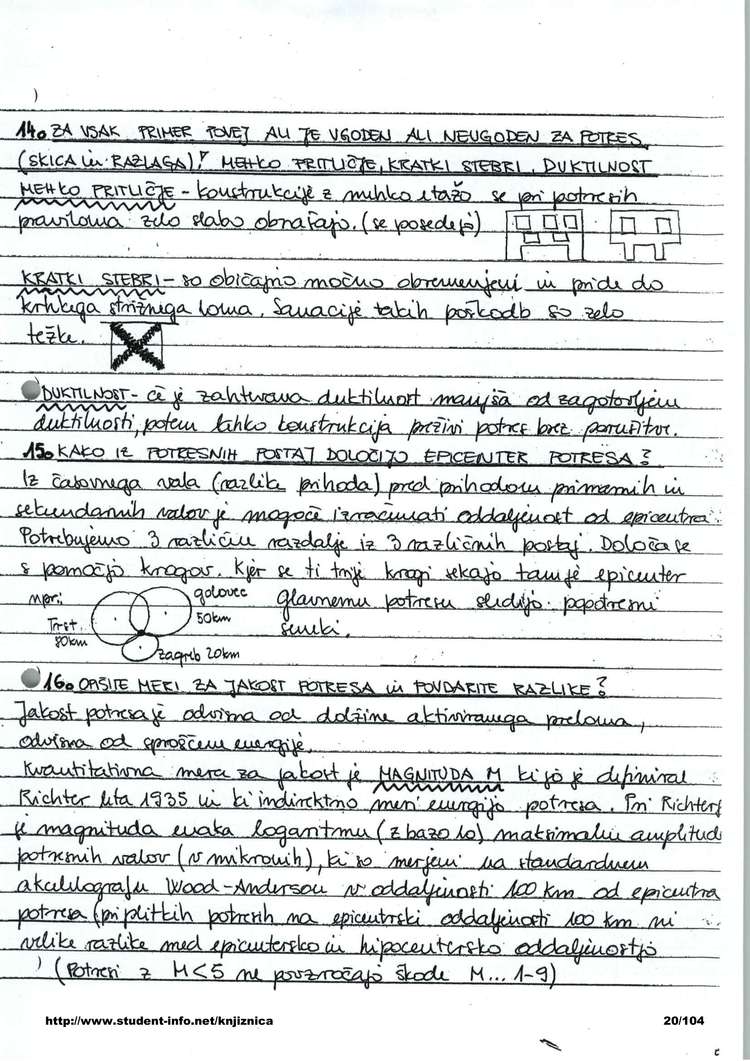 14. ZA VSAK PRIMER POVEJ ALI JE UGODEN ALI NEUGODEN ZA POTRES
(SKICA in RAZLAGA)! MEHKO PRITLIČJE, KRATKI STEBRI, DUKTILNOST
MEHKO PRITLIČJE - konstrukcije z mehko etažo se pri potresih
praviloma zelo slabo obnašajo. (se posedejo)
KRATKI STEBRI - so običajno močno obremenjeni in pride do
krhkega strižnega loma. Sanacije takih poškodb so zelo
težke.
DUKTILNOST - če je zahtevana duktilnost manjša od zagotovljene
duktilnosti, potem lahko konstrukcija preživi potres brez porušitve.
15. KAKO IZ POTRESNIH POSTAJ DOLOČIJO EPICENTER POTRESA?
Iz časovnega vala (razlike prihoda) pred prihodom primarnih in
sekundarnih valov je mogoče izračunati oddaljenost od epicentra.
Potrebujemo 3 različne razdalje iz 3 različnih postaj. Določa se
s pomočjo krogov. Kjer se ti trije krogi sekajo tam je epicenter
npr.:
golovec
50km
Trst
80km
Zagreb 20km
glavnemu potresu sledijo popotresni
sunki.
16. OPIŠITE MERI ZA JAKOST POTRESA in POUDARITE RAZLIKE?
Jakost potresa je odvisna od dolžine aktiviranega preloma,
odvisna od sproščene energije.
Kvantitativna mera za jakost je MAGNITUDA M ki jo je definiral
Richter leta 1935 in ki indirektno meri energijo potresa. Pri Richterj
je magnituda enaka logaritmu (z bazo 10) maksimalne amplitude
potresnih valov (v mikronih), ki so merjeni na standardnem
akcelelografu Wood-Anderson v oddaljenosti 100 km od epicentra
potresa (pri plitkih potresih na epicentrski oddaljenosti 100 km ni
velike razlike med epicentersko in hipocentersko oddaljenostjo
) (Potresi z M<5 ne povzročajo škode M... 1-9)
http://www.student-info.net/knjiznica
20/104